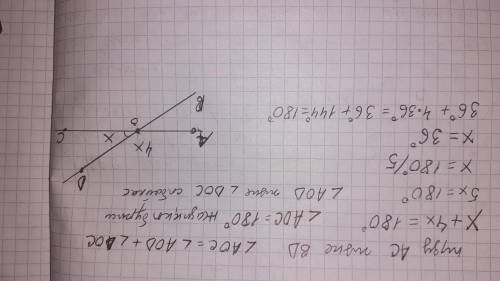 түзу AC және BD ∠AOC = ∠AOD + ∠DOC
X + 4x = 180° ∠AOC = 180°
5x = 180° ∠AOD және ∠DOC сыбайлас
x = 180°/5
x = 36°
36° + 4·36° = 36° + 144° = 180°
D
4x
x
A
O
C
B